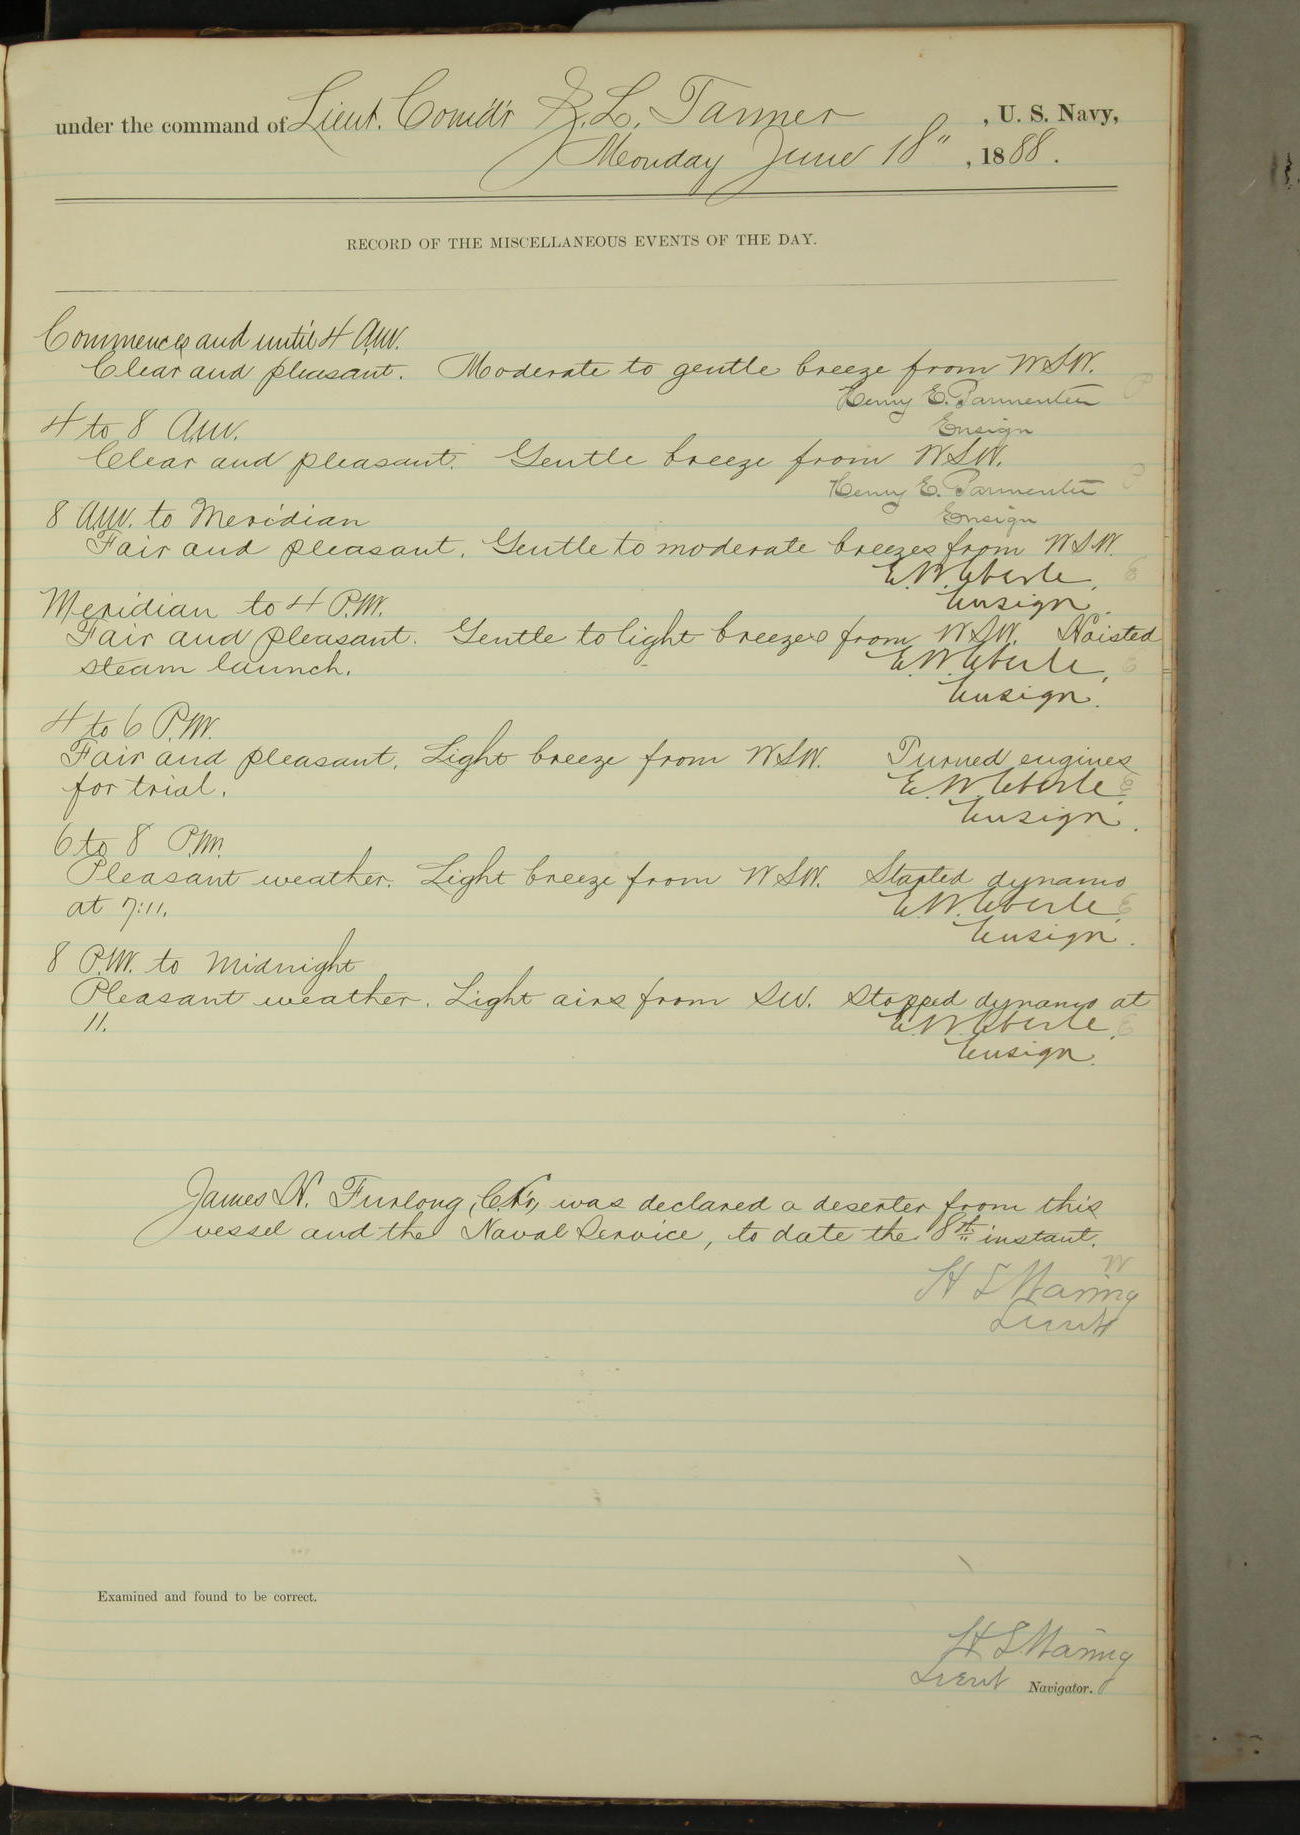 under the command of Lieut. Comd'r Z. L. Tanner, U. S. Navy,
Monday June 18", 1888.
RECORD OF THE MISCELLANEOUS EVENTS OF THE DAY.
Commences and until 4 A.M.
Clear and pleasant. Moderate to gentle breeze from W.S.W.
Henry E. Parmenter
Ensign
4 to 8 A.M.
Clear and pleasant. Gentle breeze from W.S.W.
Henry E. Parmenter
Ensign
8 A.M. to Meridian
Fair and pleasant. Gentle to moderate breezes from W.S.W.
E. W. Eberle,
Ensign.
Meridian to 4 P.M.
Fair and pleasant. Gentle to light breezes from W.S.W. Hoisted
steam launch.
E. W. Eberle,
Ensign.
4 to 6 P.M.
Fair and pleasant. Light breeze from W.S.W. Turned engines
for trial.
E. W. Eberle,
Ensign.
6 to 8 P.M.
Pleasant weather. Light breeze from W.S.W. Started dynamo
at 7:11.
E. W. Eberle,
Ensign.
8 P.M. to Midnight
Pleasant weather. Light airs from S.W. Stopped dynamo at
11.
E. W. Eberle,
Ensign.
James N. Furlong, was declared a deserter from this
vessel and the Naval Service, to date the 8th instant.
H S Waring
Lieut
Examined and found to be correct.
H S Waring
Lieut Navigator.